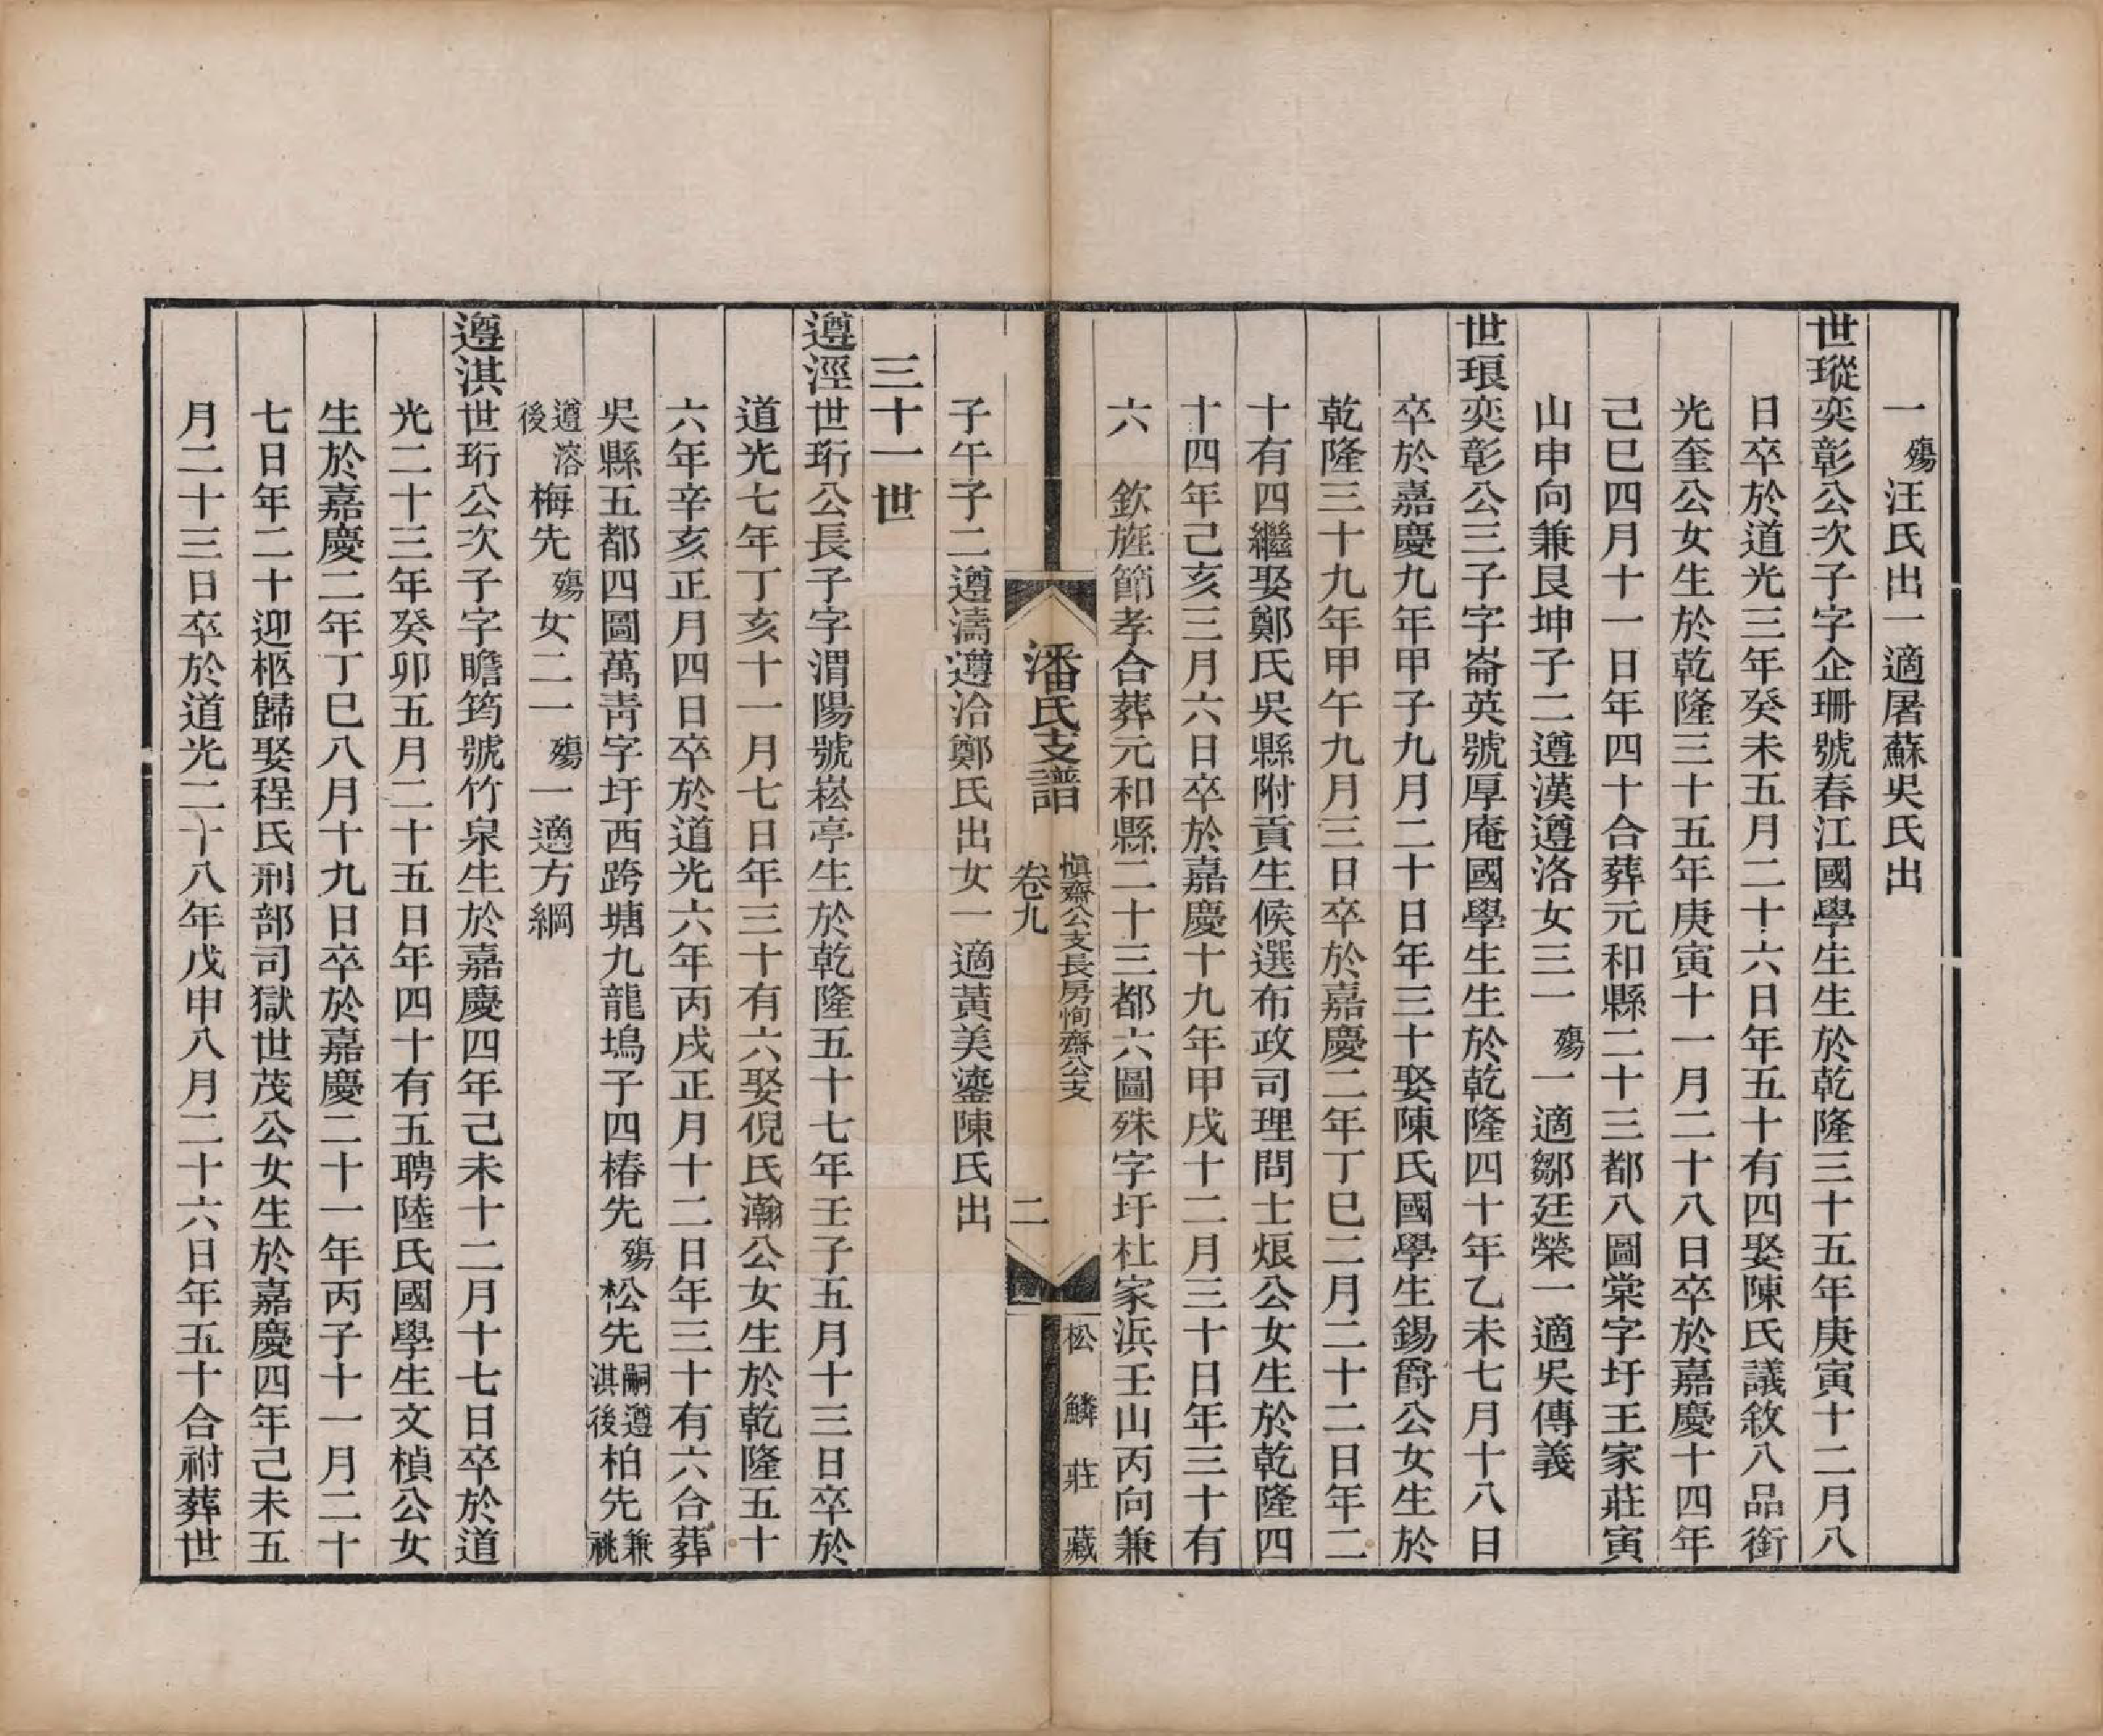 一殤汪氏出一適屠蘇吳氏出
世瑽奕彰公次子字企珊號春江國學生生於乾隆三十五年庚寅十二月八
日卒於道光三年癸未五月二十六日年五十有四娶陳氏議敘八品銜
光奎公女生於乾隆三十五年庚寅十一月二十八日卒於嘉慶十四年
己巳四月十一日年四十合葬元和縣二十三都八圖棠字圩王家莊寅
山申向兼艮坤子二遵漢遵洛女三一殤一適鄒廷榮一適吳傳義
世琅奕彰公三子字崙英號厚庵國學生生於乾隆四十年乙未七月十八日
卒於嘉慶九年甲子九月二十日年三十娶陳氏國學生錫爵公女生於
乾隆三十九年甲午九月三日卒於嘉慶二年丁巳二月二十二日年二
十有四繼娶鄭氏吳縣附貢生候選布政司理問士烺公女生於乾隆四
十四年己亥三月六日卒於嘉慶十九年甲戌十二月三十日年三十有
六　欽旌節孝合葬元和縣二十三都六圖殊字圩杜家浜壬山丙向兼
潘氏支譜　卷九　慎齋公支長房恂齋公支　二　松鱗莊藏
子午子二遵濤遵洽鄭氏出女一適黃美鎏陳氏出
三十一世
遵涇世珩公長子字渭陽號崧亭生於乾隆五十七年壬子五月十三日卒於
道光七年丁亥十一月七日年三十有六娶倪氏瀚公女生於乾隆五十
六年辛亥正月四日卒於道光六年丙戌正月十二日年三十有六合葬
吳縣五都四圖萬青字圩西跨塘九龍塢子四椿先殤松先嗣遵淇後柏先兼祧
遵溶後梅先殤女二一殤一適方綱
遵淇世珩公次子字瞻筠號竹泉生於嘉慶四年己未十二月十七日卒於道
光二十三年癸卯五月二十五日年四十有五聘陸氏國學生文楨公女
生於嘉慶二年丁巳八月十九日卒於嘉慶二十一年丙子十一月二十
七日年二十迎柩歸娶程氏刑部司獄世茂公女生於嘉慶四年己未五
月二十三日卒於道光二十八年戊申八月二十六日年五十合祔葬世